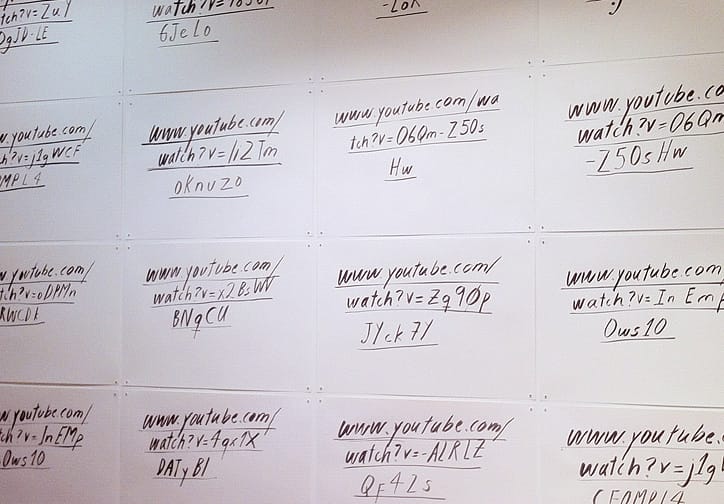 watch?v=
6JeLo
DgJD-LE
-LoK
w.youtube.com/
ch?v=j1gWCF
OMPL4
www.youtube.com/
watch?v=1i2Tm
oKnuzo
www.youtube.com/wa
tch?v=O6Qm-Z50s
Hw
www.youtube.co
watch?v=O6Qm
-Z50sHw
w youtube.com/
tch?v=oDPMn
RWCDE
www.youtube.com/
watch?v=x2BsWV
BNqCU
www.youtube.com/
watch?v=Zq9Op
JYck7Y
www.youtube.com/
watch?v=InEmp
Ows10
w.youtube.com/
ch?v=InEMp
Ows10
www.youtube.com/
watch?v=4qx1X
DATyBI
www.youtube.com/
watch?v=-ALRLZ
QF4Ls
www.youtube.
watch?v=j1g
CFOMPL4